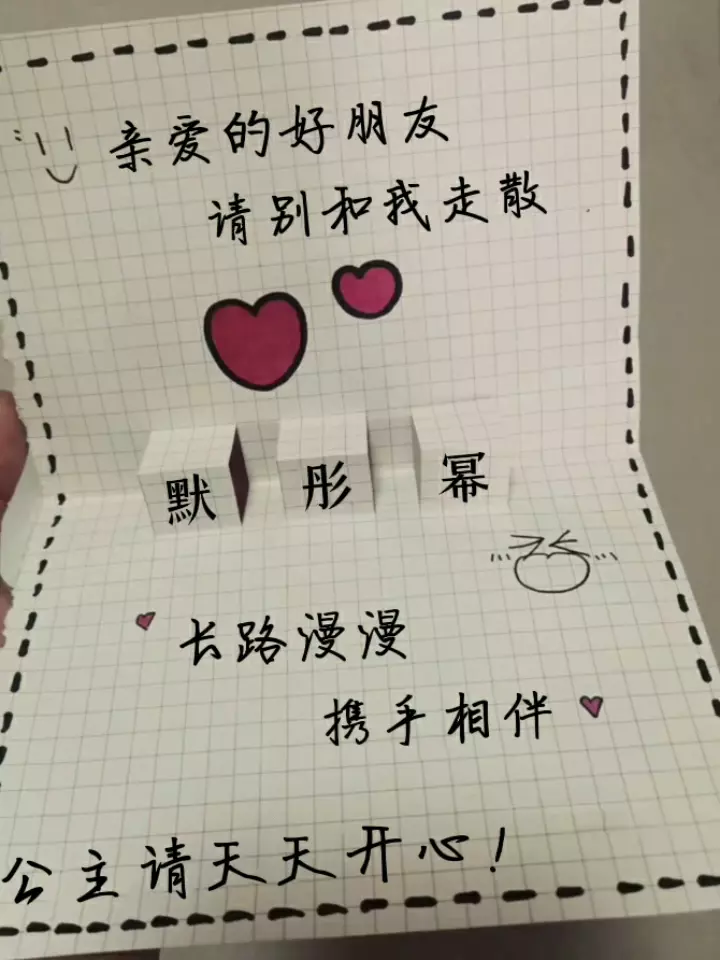 亲爱的好朋友
请别和我走散
默彤幂
长路漫漫
携手相伴
公主请天天开心！